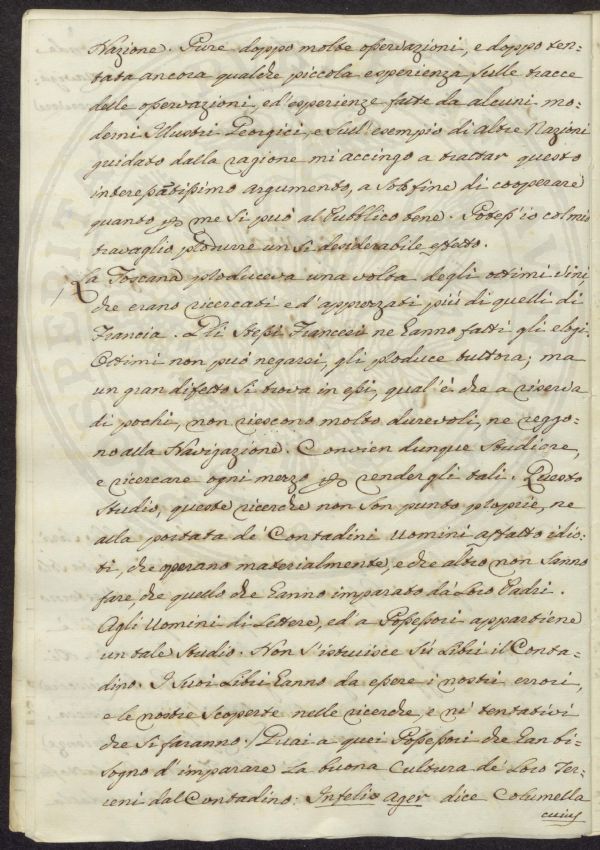 Nazione. Pure doppo molte osservazioni, e doppo ten-
tata ancora qualche piccola esperienza sulle tracce
delle osservazioni, ed' esperienze fatte da alcuni mo-
derni Illustri Georgici, e sull' esempio di altre Nazioni
guidato dalla ragione mi accingo a trattar questo
interessantissimo argumento, a sol fine di cooperare
quanto per me si può al Pubblico bene. Potess' io col mio
travaglio produrre un sì desiderabile effetto.
La Toscana produceva una volta degli ottimi Vini,
che erano ricercati ed' apprezzati più di quelli di
Francia. Gli stessi Francesi ne hanno fatti gli elogi.
Ottimi non può negarsi, gli produce tuttora; ma
un gran difetto si trova in essi, qual' è che a riserva
di pochi, non riescono molto durevoli, ne reggo-
no alla Navigazione. Convien dunque studiare,
e ricercare ogni mezzo per rendergli tali. Questo
studio, queste ricerche non son punto proprie, ne
alla portata de' Contadini uomini affatto idio-
ti, che operano materialmente, e che altro non sanno
fare, che quello che hanno imparato da' Loro Padri.
Agli Uomini di Lettere, ed' a Possessori appartiene
un tale studio. Non s' istruisce su' Libri il Conta-
dino. I suoi Libri hanno da essere i nostri errori,
e le nostre scoperte nelle ricerche, e ne' tentativi
che si faranno. Guai a quei Possessori che han bi-
sogno d' imparare la buona Cultura de' Loro Ter-
reni dal Contadino: Infelix Ager dice Columella
cuius